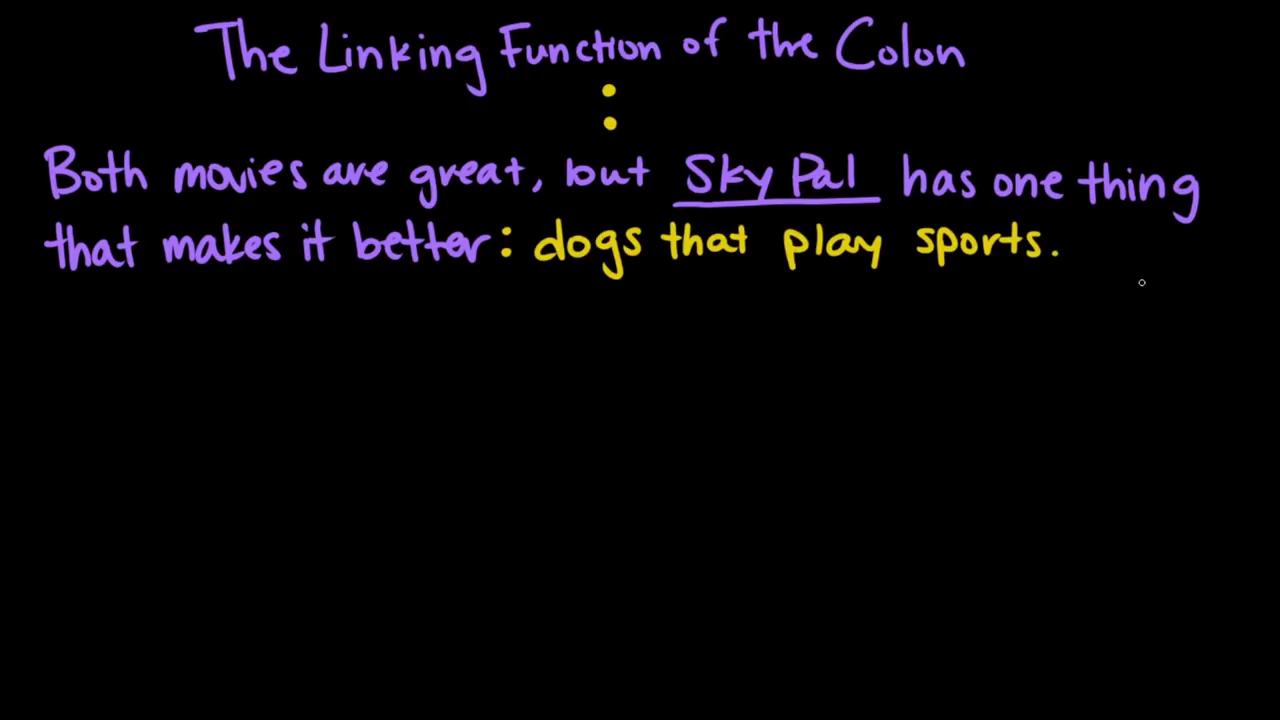 The Linking Function of the Colon
:
Both movies are great, but Sky Pal has one thing
that makes it better: dogs that play sports.